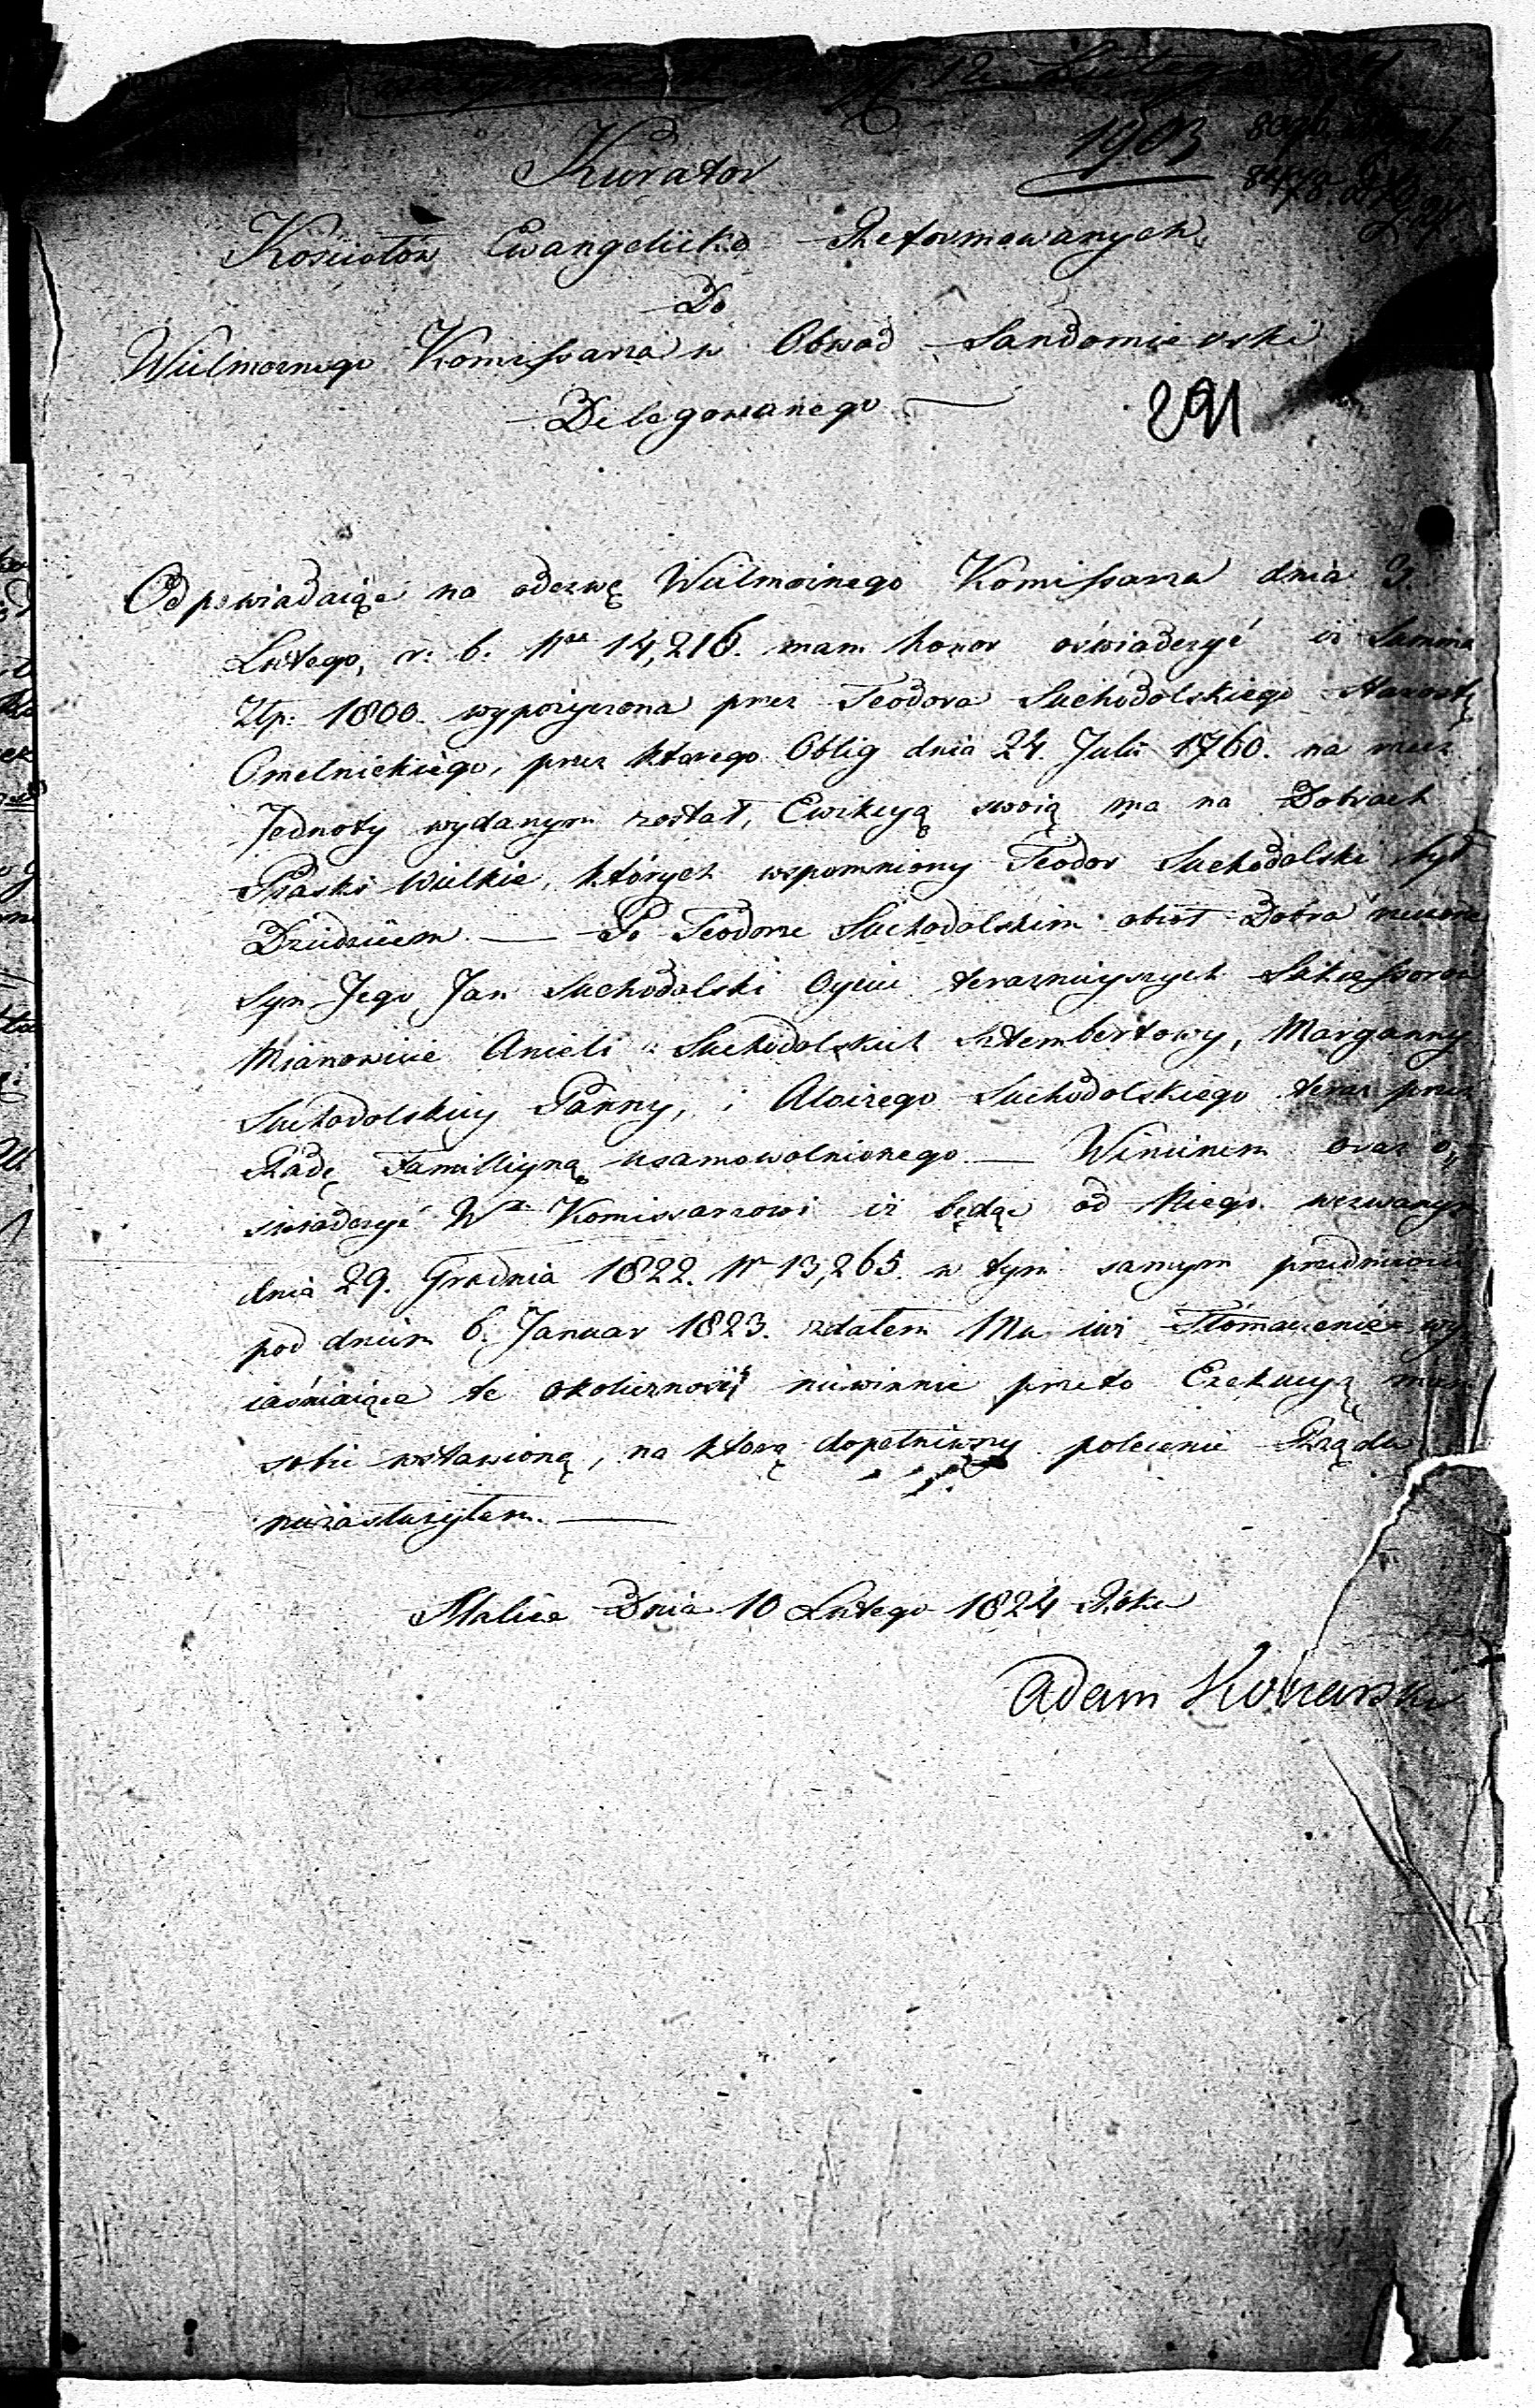 12 Lutego
1903
Kurator
Kościołow Ewangelicko Reformowanych
Do
Wielmoznego Komissarza w Obwod Sandomierski
Delegowanego —
291
Odpowiadaiąc na odezwę Wielmoznego Komissarza dnia 3.
Lutego, r: b: Nro 14,216. mam honor oświadczyć iż Summa
Złp: 1800. wypożyczona przez Teodora Suchodolskiego Starostę
Omelnickiego, przez ktorego Oblig dnia 24. Juli 1760. na rzecz
Jednoty wydanym został, Ewikcyą swoią ma na Dobrach
Piaski Wielkie, których wspomniony Teodor Suchodolski był
Dziedzicem. — Po Teodorze Suchodolskim obiął Dobra rzeczone
Syn Jego Jan Suchodolski Oyciec teraznieyszych Sukcessorow
Mianowicie Anieli z Suchodolskich Sztembertowy, Maryanny
Suchodolskiey Panny, i Aloizego Suchodolskiego teraz przez
Radę Familliyną usamowolnionego — Winienem oraz o„
świadczyć Wmu Komissarzowi iż będąc od Niego wezwanym
dnia 29. Grudnia 1822. Nr 13,265. w tym samym przedmiocie
pod dniem 6. Januar 1823. zdałem Mu iuż Tłómaczenie wy„
iaśniaiące te okoliczności niewinnie przeto Exekucyą mam
sobie wstawioną, na ktorą dopełniwszy polecenie Rządu
niezasłużyłem. —
Malice Dnia 10 Lutego 1824 Roku
Adam Konarski